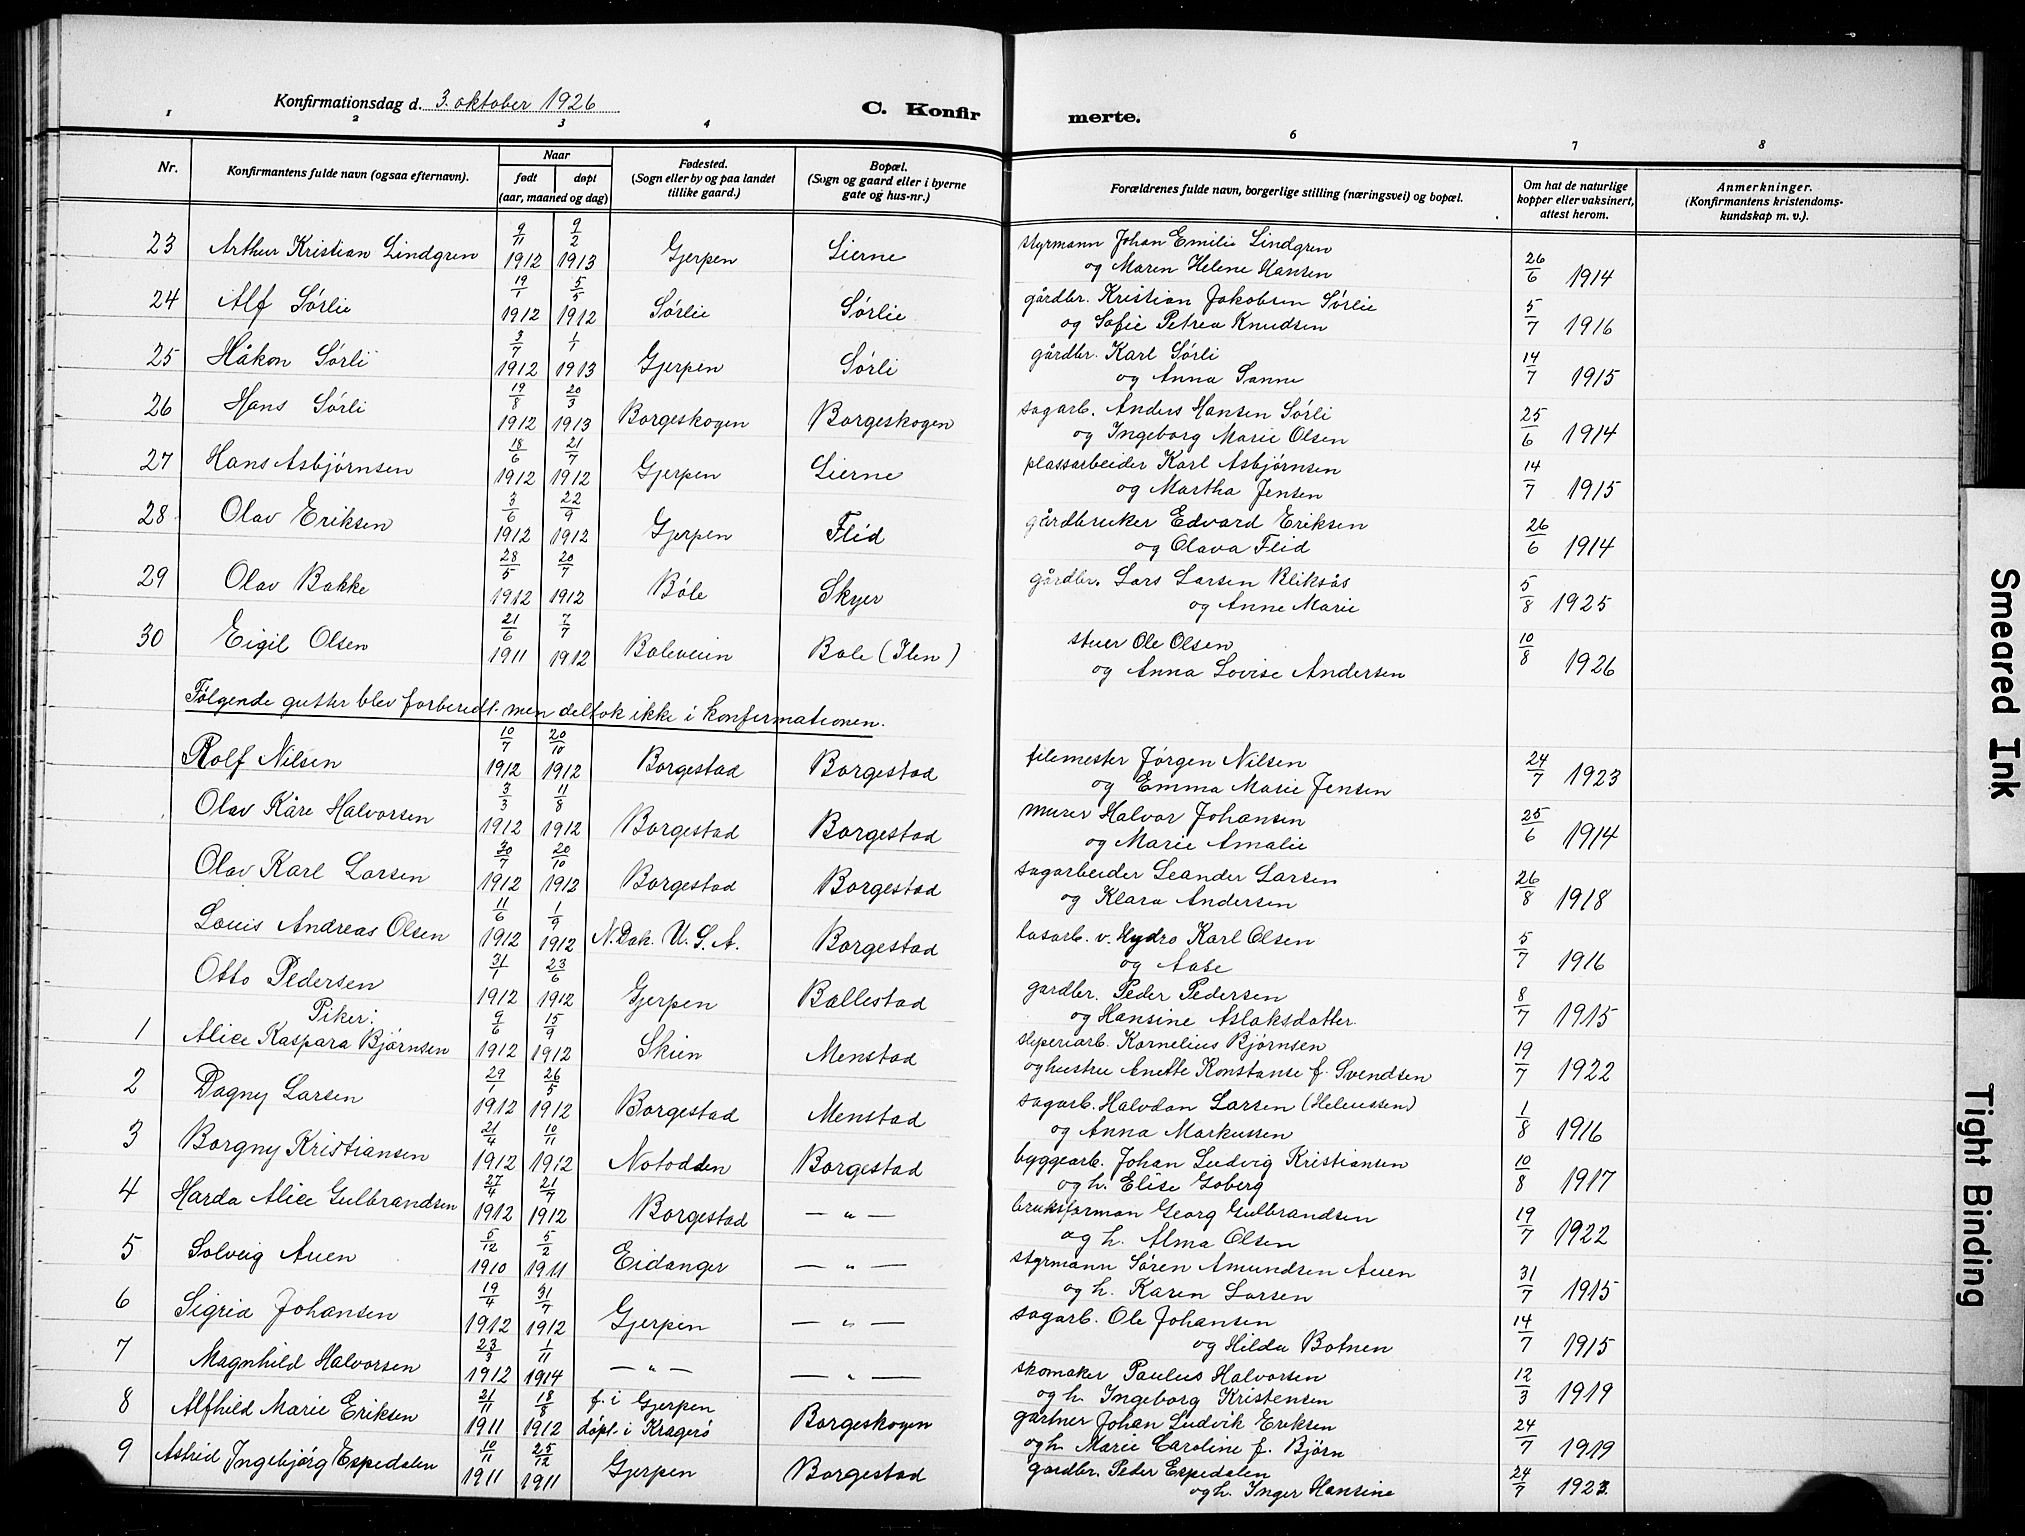 Konfirmationsdag d. 3. oktober 1926
C. Konfir merte.
1 2 3 4 6 7 8
Nr. Konfirmantens fulde navn (ogsaa efternavn). Naar født døpt (aar, maaned og dag) Fødested. (Sogn eller by og paa landet tillike gaard.) Bopæl. (Sogn og gaard eller i byerne gate og hus-nr.) Forældrenes fulde navn, borgerlige stilling (næringsvei) og bopæl. Om hat de naturlige kopper eller vaksinert, attest herom. Anmerkninger. (Konfirmantens kristendomskundskap m. v.).
23 Arthur Kristian Lindgren 9/11 1912 9/2 1913 Gjerpen Lierne styrmann Johan Emilie Lindgren og Maren Helene Hansen 26/6 1914
24 Alf Sørlie 19/1 1912 5/5 1912 Sørlie Sørlie gårdbr. Kristian Jakobsen Sørlie og Sofie Petrea Knudsen 5/7 1916
25 Håkon Sørli 3/7 1912 1/1 1913 Gjerpen Sørli gårdbr. Karl Sørli og Anna Sanne 14/7 1915
26 Hans Sørli 19/8 1912 20/3 1913 Borgeskogen Borgeskogen sagarb. Anders Hansen Sørli og Ingeborg Marie Olsen 25/6 1914
27 Hans Asbjørnsen 18/6 1912 21/7 1912 Gjerpen Lierne plassarbeider Karl Asbjørnsen og Martha Jensen 14/7 1915
28 Olav Eriksen 3/6 1912 22/9 1912 Gjerpen Flid gårdbruker Edvard Eriksen og Olava Flid 26/6 1914
29 Olav Bakke 28/5 1912 20/7 1912 Bøle Skyer gårdbr. Lars Larsen Bliksås og Anne Marie 5/8 1925
30 Eigil Olsen 21/6 1911 7/7 1912 Baleveien Bale (Ilen) stuer Ole Olsen og Anna Lovise Andersen 10/8 1926
Følgende gutter blev forberedt men deltok ikke i konfirmationen.
Rolf Nilsen 10/7 1912 20/10 1912 Borgestad Borgestad filemester Jørgen Nilsen og Emma Marie Jensen 24/7 1923
Olav Kåre Halvorsen 3/3 1912 11/8 1912 Borgestad Borgestad murer Halvor Johansen og Marie Amalie 25/6 1914
Olav Karl Larsen 30/7 1912 20/10 1912 Borgestad Borgestad sagarbeider Leander Larsen og Klara Andersen 26/8 1918
Louis Andreas Olsen 11/6 1912 1/9 1912 N. Dak. U. S. A. Borgestad losarb. v. Hydro Karl Olsen og Aase 5/7 1916
Otto Pedersen 31/1 1912 23/6 1912 Gjerpen Ballestad gardbr. Peder Pedersen og Hansine Aslaksdatter 8/7 1915
Piker:
1 Alice Kaspara Bjørnsen 9/6 1912 15/9 1912 Skien Menstad sliperiarb. Kornelius Bjørnsen og hustru Anette Konstanse f. Svendsen 19/7 1922
2 Dagny Larsen 29/1 1912 26/5 1912 Borgestad Menstad sagarb. Halvdan Larsen (Heleussen) og Anna Markussen 1/8 1916
3 Borgny Kristiansen 21/4 1912 10/11 1912 Notodden Borgestad byggearb. Johan Ludvig Kristiansen og h. Elise Goberg 10/8 1917
4 Harda Alice Gulbrandsen 27/4 1912 21/7 1912 Borgestad — " — bruksforman Georg Gulbrandsen og h. Alma Olsen 19/7 1922
5 Solveig Auen 5/12 1910 5/2 1911 Eidanger — " — styrmann Søren Amundsen Auen og h. Karen Larsen 31/7 1915
6 Sigrid Johansen 19/4 1912 31/7 1912 Gjerpen — " — sagarb. Ole Johansen og Hilda Botnen 14/7 1915
7 Magnhild Halvorsen 23/3 1912 1/11 1914 — " — — " — skomaker Paulus Halvorsen og h. Ingeborg Kristensen 12/3 1919
8 Alfhild Marie Eriksen 21/11 1911 18/8 1912 f. i Gjerpen døpt i Kragerø Borgeskogen gartner Johan Ludvik Eriksen og h. Marie Caroline f. Bjørn 24/7 1919
9 Astrid Ingebjørg Espedalen 10/11 1911 25/12 1911 Gjerpen Borgestad gardbr. Peder Espedalen og h. Inger Hansine 24/7 1923
Smeared Ink
Tight Binding